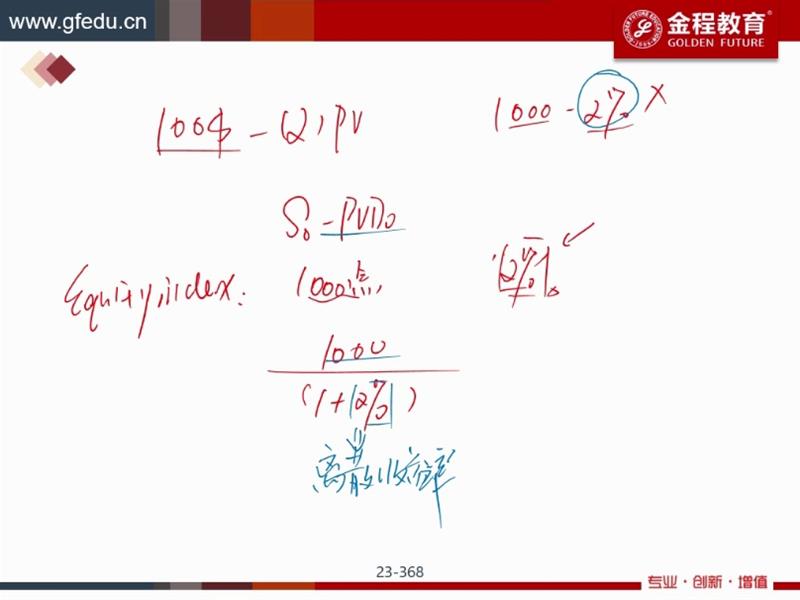 www.gfedu.cn
金程教育
GOLDEN FUTURE
100$ - (2) PV
1000 - 2% X
S₀ - PVD₀
Equity index: 1000点, 2%
1000
(1+2%)
离散收益率
23-368
专业·创新·增值